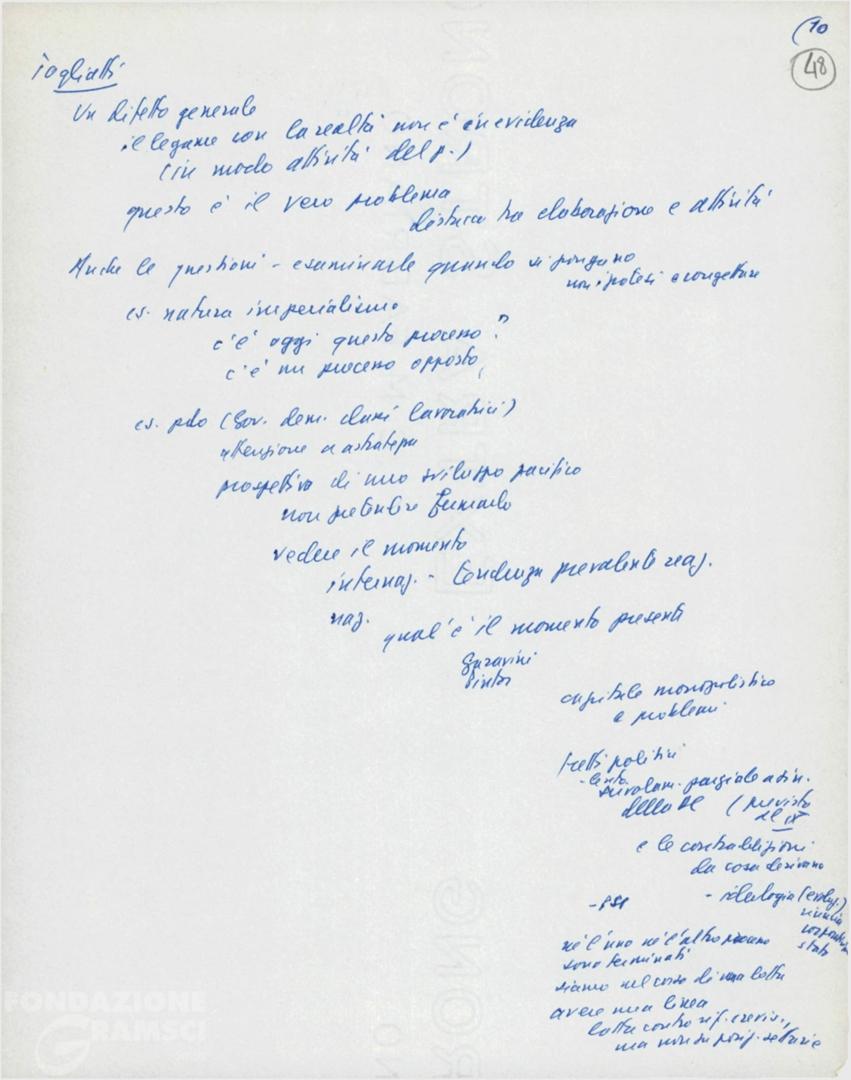 (10
48
Togliatti
Un difetto generale
il legame con la realtà non è in evidenza
(in modo attività del p.)
questo è il vero problema
distacco tra elaborazione e attività
Anche le questioni - esaminarle quando si pongono
non ipotesi e congetture
es. natura imperialismo
c'è oggi questo processo?
c'è un processo opposto
es. pdo (Gov. dem. classi lavoratrici)
attenzione a
prospettiva di uno sviluppo pacifico
non pretendere
vedere il momento
internaz. - tendenza prevalente reaz.
naz.
qual'è il momento presente
Garavini
Pintor
capitale monopolistico
e problemi
fatti politici
- lento
parziale a sin.
della DC (previsto
al IX
e le contraddizioni
da cosa derivano
- ideologia
stato
- PSI
né l'uno né l'altro processo
sono terminati
siamo nel corso di una lotta
avere una linea
lotta contro rif. e revis.,
ma non su posiz. settarie
FONDAZIONE
GRAMSCI